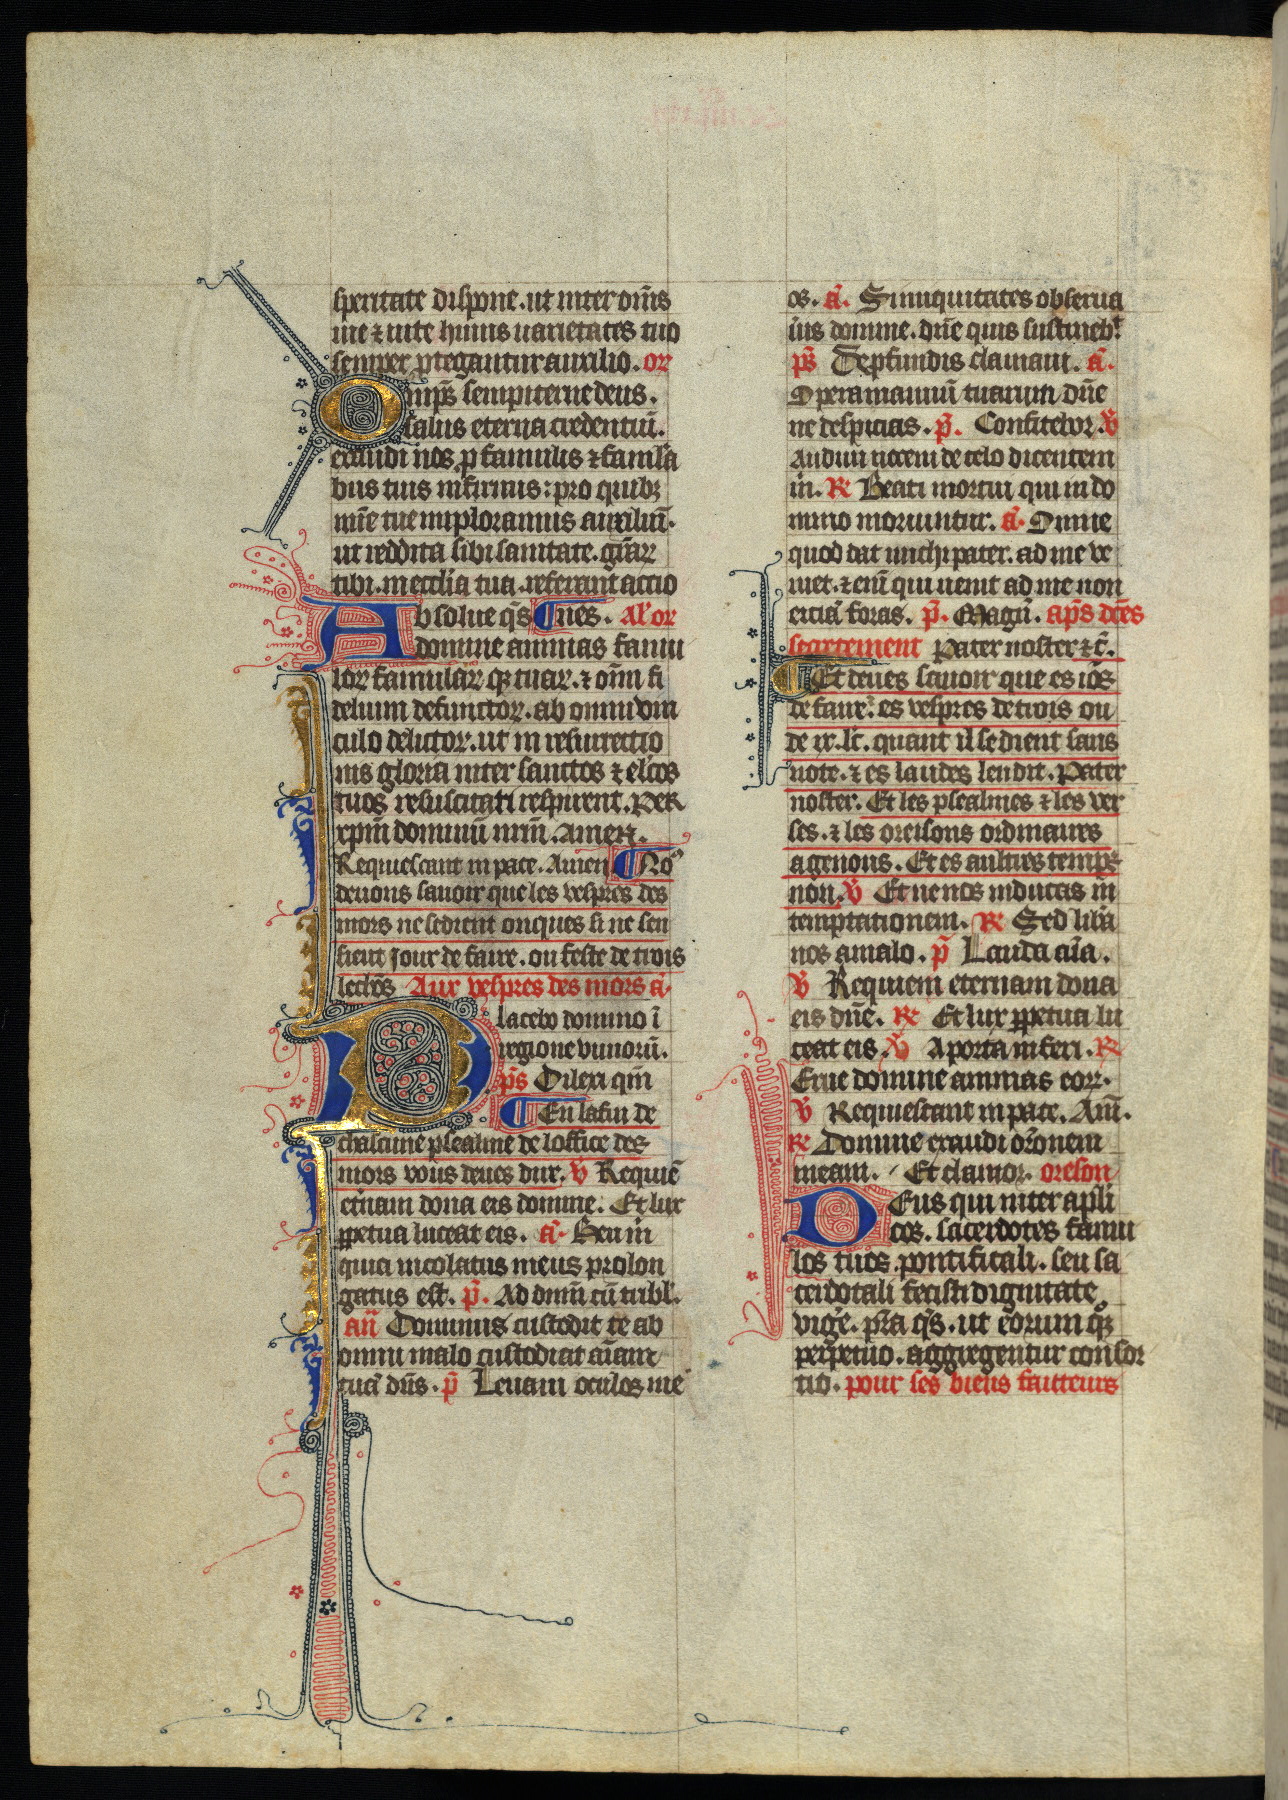 speritate dispone. ut inter om̄s
uie ⁊ uite huius uarietates tuo
semper ꝓtegantur auxilio. or
Omp̄s sempiterne deus.
salus eterna credentiū.
exaudi nos ꝓ famulis ⁊ famula
bus tuis infirmis: pro quibꝫ
mīe tue imploramus auxiliū.
ut reddita sibi sanitate. grāꝝ
tibi. in ecclīa tua. referant actio
Absolue q̄s ¶nes. Al' or
domine animas famu
loꝝ famulaꝝ qꝫ tuaꝝ. ⁊ om̄ fi
delium defunctoꝝ. ab omni vin
culo delictoꝝ. ut in resurrectio
nis gloria inter sanctos ⁊ el̄cos
tuos resuscitati respirent. PER
xp̄m dominū nr̄m. Amen.
Requiescant in pace. Amen ¶ No⁹
deuons sauoir que les vespres des
mors ne sedient onques si ne sen
sieut jour de faire. ou feste de trois
lechōs Aux vespres des mors a͞.
Placebo domino ī
regione viuorū.
p̄s Dilexi qm̄
¶ En lafin de
chascune psealme de loffice des
mors vous deues dire. v̄ Requiē
et̄nam dona eis domine. Et lux
ꝑpetua luceat eis. a͞. Heu m̄
quia incolatus meus prolon
gatus est. p̄. Ad dn̄m cū tribl'.
an̄ Dominus custodit te ab
omni malo custodiat aīam
tuā dn̄s. p̄ Leuaui oculos me
os. a͞. Si iniquitates obserua
ūis domine. dn̄e quis sustineb͛.
p̄s De ꝓfundis clamaui. a͞.
Opera manuū tuarum dn̄e
ne despicias. p̄. Confitebor. v̄
Audiui uocem de celo dicentem
m̄. ℟ Beati mortui qui in do
mino moriuntur. a͞. Omne
quod dat michi pater. ad me ve
niet. ⁊ eū qui uenit ad me non
eiciā foras. p̄. Magn̄. ap̄s dēs
Pater noster ⁊c̄.
¶ Et deues sauoir que es iōs
de faire. es vespres de trois ou
de ix. lc̄. quant il se dient sans
note. ⁊ es laudes len dit. Pater
noster. Et les psealmes ⁊ les ver
ses. ⁊ les oreisons ordinaires
agenous. Et es aultres temps
non. v̄ Et ne nos inducas in
temptationem. ℟ Sed libā
nos amalo. p̄ Lauda aīa.
v̄ Requiem eternam dona
eis dn̄e. ℟ Et lux ꝑpetua lu
ceat eis. v̄ A porta inferi. ℟
Erue domine animas eoꝝ.
v̄ Requiescant in pace. Am̄.
℟ Domine exaudi or̄onem
meam. Et clamor. oreson
Deus qui inter apl̄i
cos. sacerdotes famu
los tuos. pontificali. seu sa
cerdotali fecisti dignitate
vige͞. p̄ra q̄s. ut eorum qꝫ
perpetuo. aggregentur consor
tio. pour ses biens faitteurs